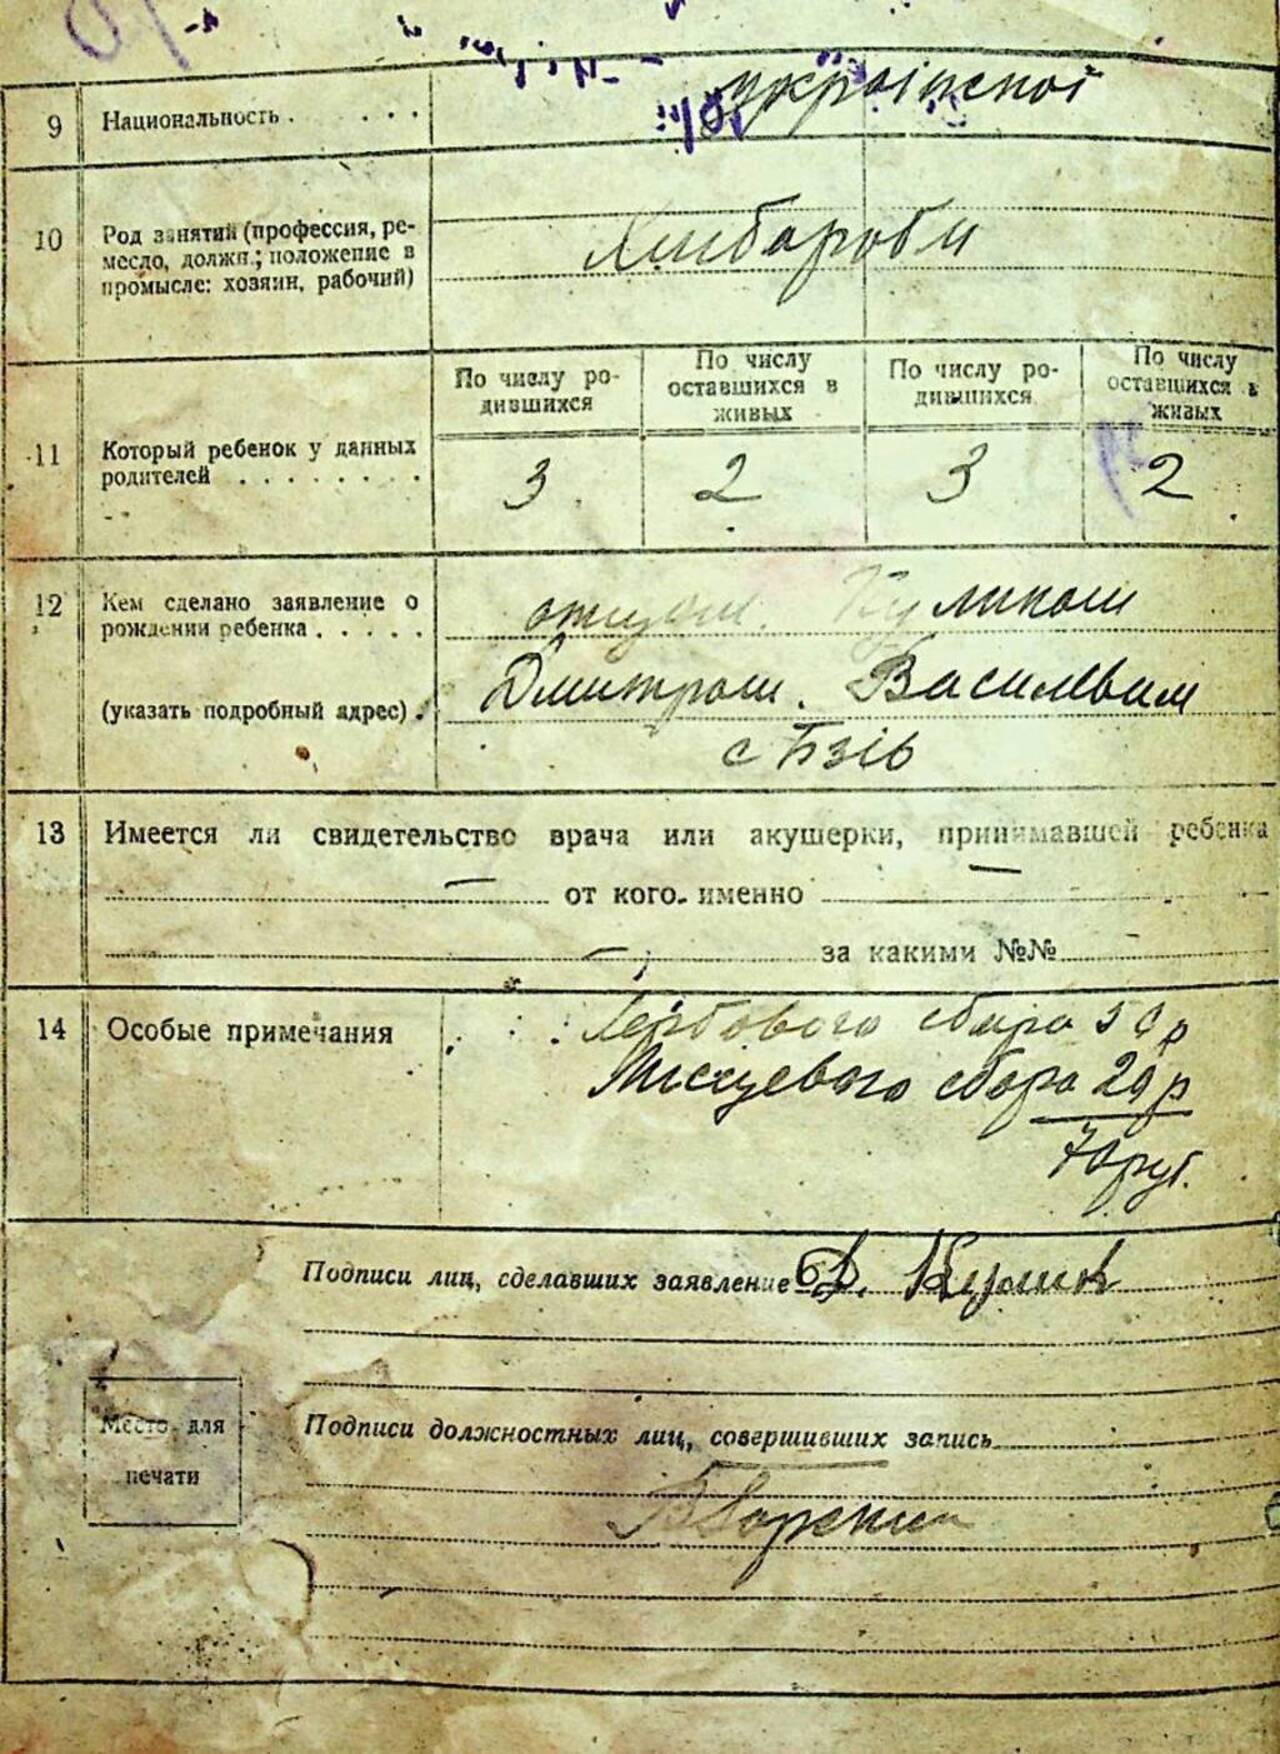 9 Национальность . . . . української
10 Род занятий (профессия, ре-
месло, должн.; положение в
промысле: хозяин, рабочий)
Хлибороби
11 Который ребенок у данных
родителей . . . . . . . .
По числу ро-
дившихся
По числу
оставшихся в
живых
По числу ро-
дившихся
По числу
оставшихся в
живых
3 2 3 2
12 Кем сделано заявление о
рождении ребенка . . . . .
(указать подробный адрес) .
отцом. Куликом
Дмитром. Василевим
с Бзів
13 Имеется ли свидетельство врача или акушерки, принимавшей ребенка
— от кого именно —
— за какими №№
14 Особые примечания
Гербового сбора 50 р
Мисцевого сбора 20 р
70 руб.
Подписи лиц, сделавших заявление Д. Кулик
Место для
печати
Подписи должностных лиц, совершивших запись